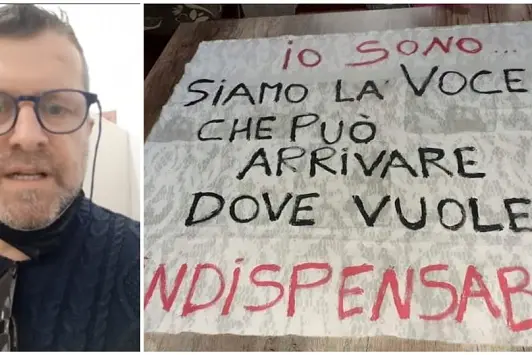 iO SONO...
SiAMO LA' VOCE
CHE PUÒ
ARRIVARE
DOVE VUOLE
NDISPENSAB